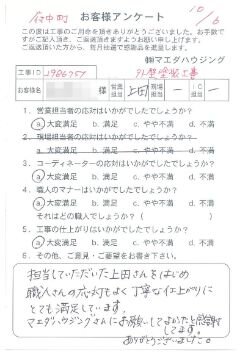 府中町 お客様アンケート 10/6
この度は工事のご用命を頂きありがとうございました。お手数で
すがご記入頂き、ご返送頂きますようお願い申し上げます。
ご返送頂いた方から、毎月抽選で感謝品を進呈します。
㈱マエダハウジング
工事ID 1986757 外壁塗装工事
様 営業担当 上田 現場担当 ー IC ー
1. 営業担当者の応対はいかがでしたでしょうか？
a.大変満足 b. 満足 c. やや不満 d. 不満
2. 現場担当者の応対はいかがでしたでしょうか？
a.大変満足 b. 満足 c. やや不満 d. 不満
3. コーディネーターの応対はいかがでしたでしょうか？
a.大変満足 b. 満足 c. やや不満 d. 不満
4. 職人のマナーはいかがでしたでしょうか？
a.大変満足 b. 満足 c. やや不満 d. 不満
それはどの職人でしょうか？ ( )
5. 工事の仕上がりはいかがでしたでしょうか？
a.大変満足 b. 満足 c. やや不満 d. 不満
6. その他、ご意見・ご要望をお書き下さい。
担当していただいた上田さんをはじめ
職人さんの応対もよく丁寧な仕上がりに
とても満足しています。
マエダハウジングさんにお願いしてよかったと感謝
してます。
ありがとうございました。